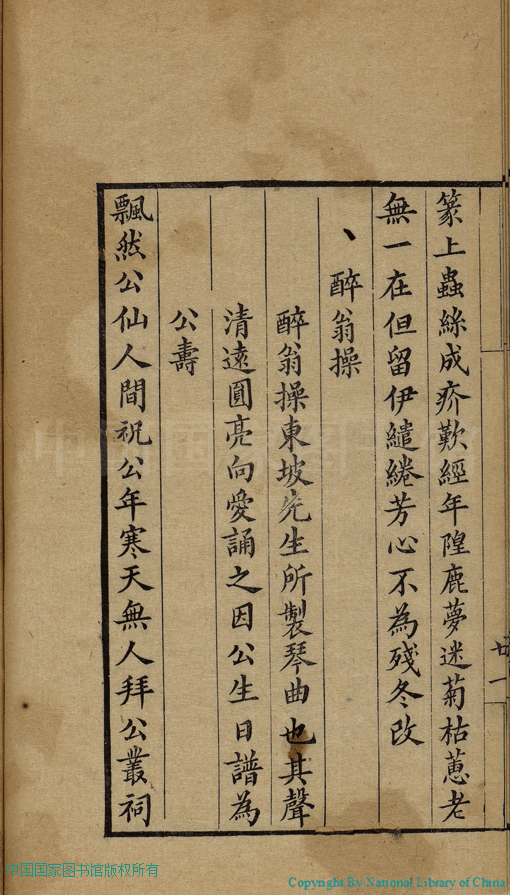 篆上蟲絲成疥歎經年隍鹿夢迷菊枯蕙老
無一在但留伊繾綣芳心不為殘冬改
、醉翁操
醉翁操東坡先生所製琴曲也其聲
清遠圓亮向愛誦之因公生日譜為
公壽
飄然公仙人間祝公年寒天無人拜公叢祠
廿一
中国国家图书馆版权所有
Copyright By National Library of China